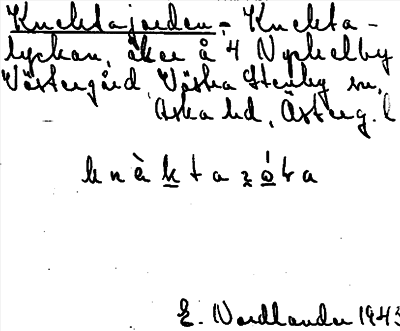 Knektajorden, = Knekta-
lyckan, åker å 4 Nyckelby
Västergård, Västra Stenby sn,
Aska hd, Österg. l
k n è k t a z ó r a
E. Nordlander 1943